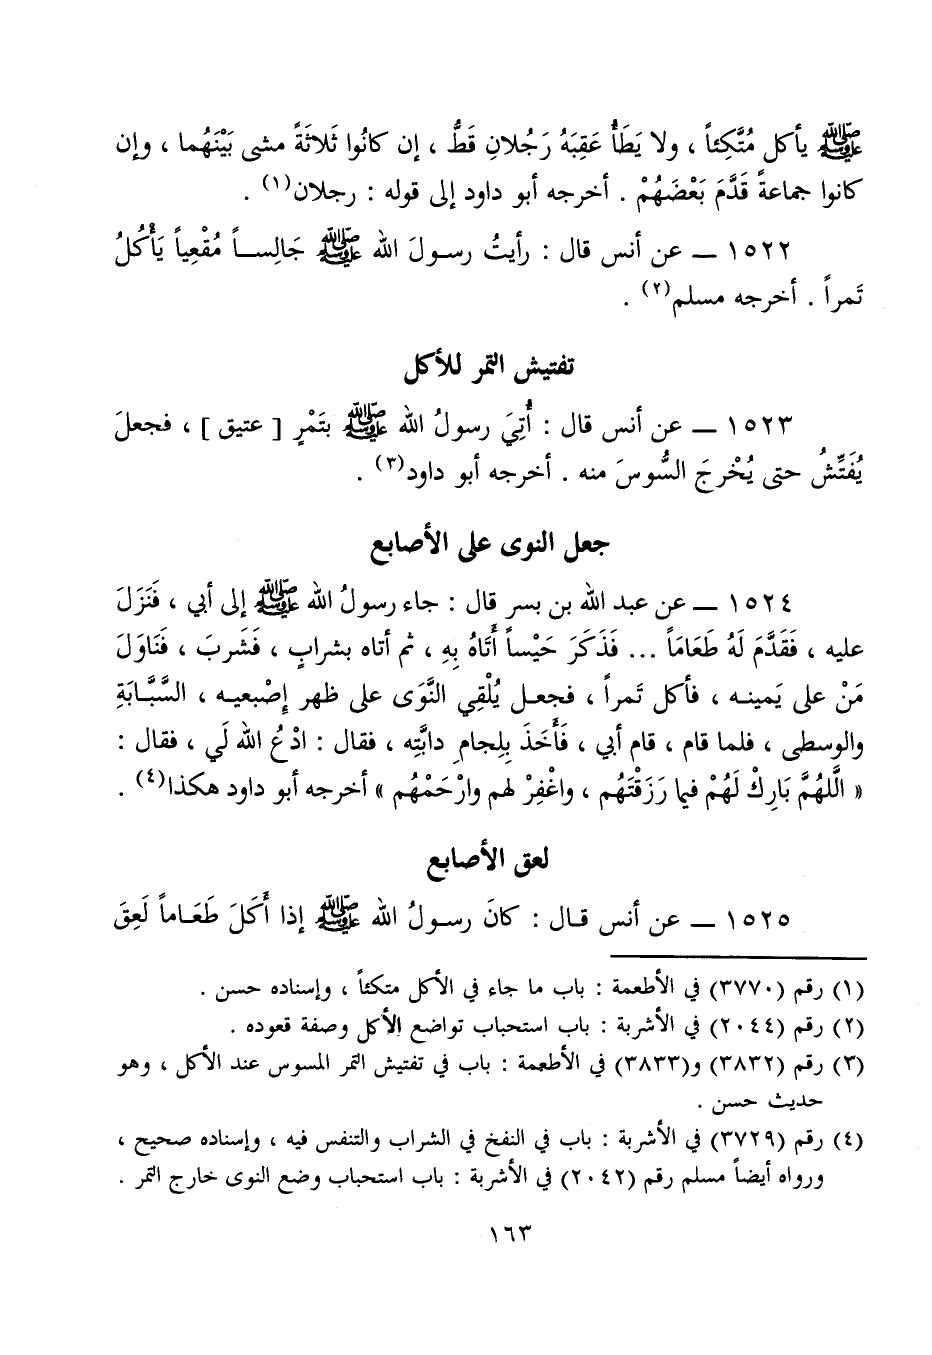 ﷺ يأكل مُتَّكِئاً ، ولا يَطَأُ عَقِبَهُ رَجُلانِ قَطُّ ، إن كانُوا ثَلاثَةً مشى بَيْنَهُما ، وإن
كانوا جماعةً قَدَّمَ بَعْضَهُمْ . أخرجه أبو داود إلى قوله : رجلان(١) .
١٥٢٢ ـ عن أنس قال : رأيتُ رسولَ الله ﷺ جَالِساً مُقْعِياً يَأْكُلُ
تَمراً . أخرجه مسلم(٢) .
تفتيش التمر للأكل
١٥٢٣ ـ عن أنس قال : أُتِيَ رسولُ الله ﷺ بتَمْرٍ [ عتيق ] ، فجعلَ
يُفَتِّشُ حتى يُخْرِجَ السُّوسَ منه . أخرجه أبو داود(٣) .
جعل النوى على الأصابع
١٥٢٤ ـ عن عبد الله بن بسر قال : جاء رسولُ الله ﷺ إلى أبي ، فَنَزَلَ
عليه ، فَقَدَّمَ لَهُ طَعَامَاً ... فَذَكَرَ حَيْساً أَتَاهُ بِهِ ، ثم أتاه بشرابٍ ، فَشَربَ ، فَنَاوَلَ
مَنْ على يَمينه ، فأكل تَمراً ، فجعل يُلْقِي النَّوَى على ظهر إِصْبعيه ، السَّبَّابَةِ
والوسطى ، فلما قام ، قام أبي ، فَأَخَذَ بِلِجامِ دابَّتِه ، فقال : ادْعُ الله لَي ، فقال :
« الَّلهُمَّ بَارِكْ لَهُمْ فيما رَزَقْتَهُم ، واغْفِرْ لهم وارْحَمْهُم » أخرجه أبو داود هكذا(٤) .
لعق الأصابع
١٥٢٥ ـ عن أنس قال : كانَ رسولُ الله ﷺ إذا أَكَلَ طَعَاماً لَعِقَ
(١) رقم (٣٧٧٠) في الأطعمة : باب ما جاء في الأكل متكئاً ، وإسناده حسن .
(٢) رقم (٢٠٤٤) في الأشربة : باب استحباب تواضع الأكل وصفة قعوده .
(٣) رقم (٣٨٣٢) و(٣٨٣٣) في الأطعمة : باب في تفتيش التمر المسوس عند الأكل ، وهو
حديث حسن .
(٤) رقم (٣٧٢٩) في الأشربة : باب في النفخ في الشراب والتنفس فيه ، وإسناده صحيح ،
ورواه أيضاً مسلم رقم (٢٠٤٢) في الأشربة : باب استحباب وضع النوى خارج التمر .
١٦٣